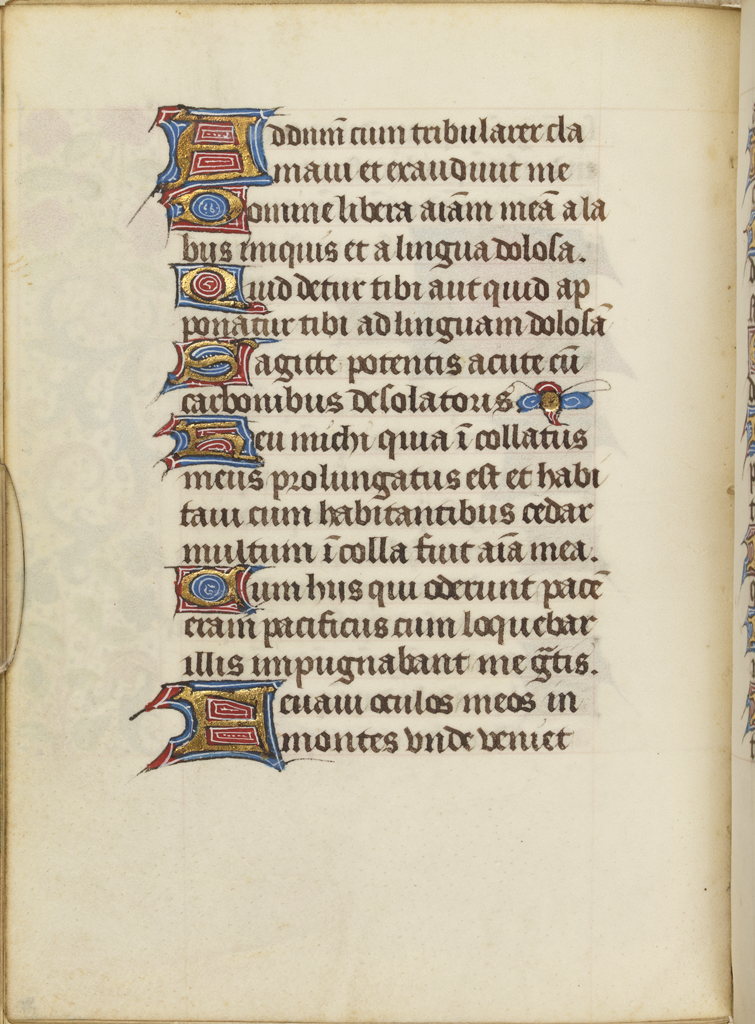 Ad dnm̄ cum tribularer cla
maui et exaudiuit me
Domine libera aīam meā a la
biis iniquis et a lingua dolosa.
Quid detur tibi aut quid ap
ponatur tibi ad linguam dolosā
Sagitte potentis acute cū
carbonibus desolatoriis.
Heu michi quia ī collatus
meus prolungatus est et habi
taui cum habitantibus cedar
multum ī colla fuit aīa mea.
Cum hiis qui oderunt pacē
eram pacificus cum loquebar
illis impugnabant me gr̄tis.
Leuaui oculos meos in
montes vnde veniet